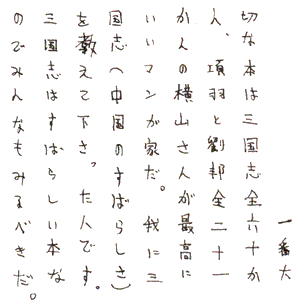 一番大
切な本は三国志全六十か
ん、項羽と劉邦全二十一
かんの横山さんが最高に
いいマンが家だ。我に三
国志(中国のすばらしさ)
を教えて下さった人です。
三国志はすばらしい本な
のでみんなもみるべきだ。